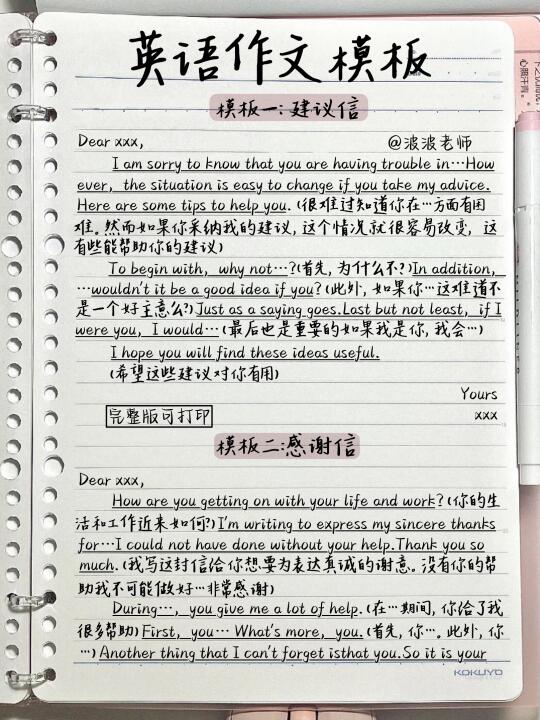 英语作文模板
模板一:建议信
Dear xxx,
@波波老师
I am sorry to know that you are having trouble in…How
ever, the situation is easy to change if you take my advice.
Here are some tips to help you.(很难过知道你在…方面有困
难。然而如果你采纳我的建议,这个情况就很容易改变,这
有些能帮助你的建议)
To begin with, why not…?(首先,为什么不?)In addition,
…wouldn't it be a good idea if you?(此外,如果你…这难道不
是一个好主意么?)Just as a saying goes.Last but not least, if I
were you, I would…(最后也是重要的如果我是你,我会…)
I hope you will find these ideas useful.
(希望这些建议对你有用)
Yours
完整版可打印
xxx
模板二:感谢信
Dear xxx,
How are you getting on with your life and work?(你的生
活和工作近来如何?)I'm writing to express my sincere thanks
for…I could not have done without your help.Thank you so
much.(我写这封信给你想要为表达真诚的谢意。没有你的帮
助我不可能做好…非常感谢)
During…, you give me a lot of help.(在…期间,你给了我
很多帮助)First, you… What's more, you.(首先,你…。此外,你
…)Another thing that I can't forget isthat you.So it is your
KOKUYO
心照汗青。